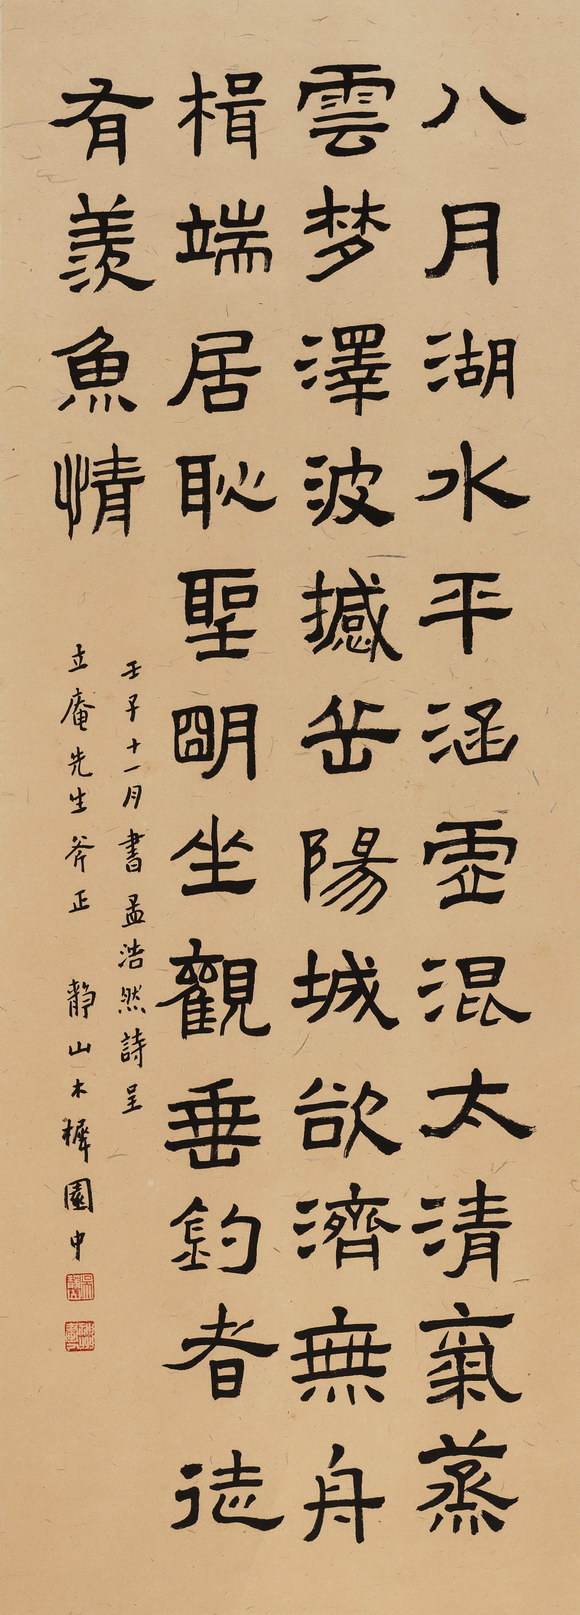 八月湖水平涵虚混太清氣蒸
雲梦澤波撼岳陽城欲濟無舟
楫端居恥聖明坐觀垂釣者徒
有羨魚情
壬子十一月書孟浩然詩呈
立庵先生斧正 靜山木樨園中